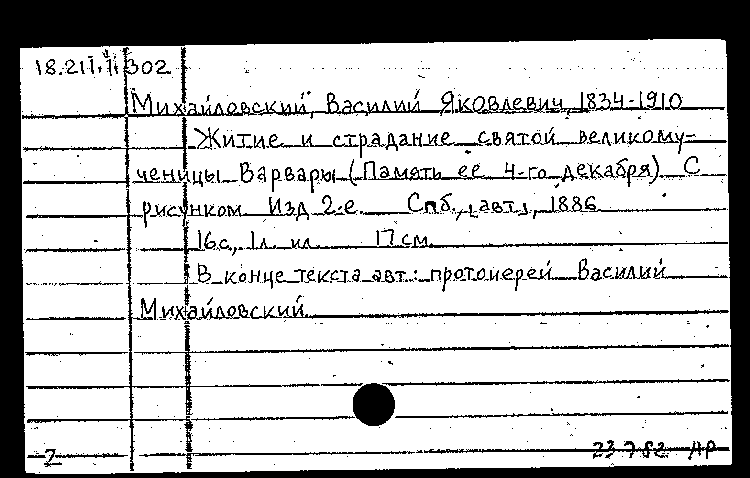 18.211.11.302
Михайловский, Василий Яковлевич, 1834-1910
Житие и страдание святой великому-
ченицы Варвары (Память ее 4-го декабря) С
рисунком Изд 2-е Спб., [авт], 1886
16с., 1л. ил 17 см.
В конце текста авт.: протоиерей Василий
Михайловский
Z 23 7 82 АР